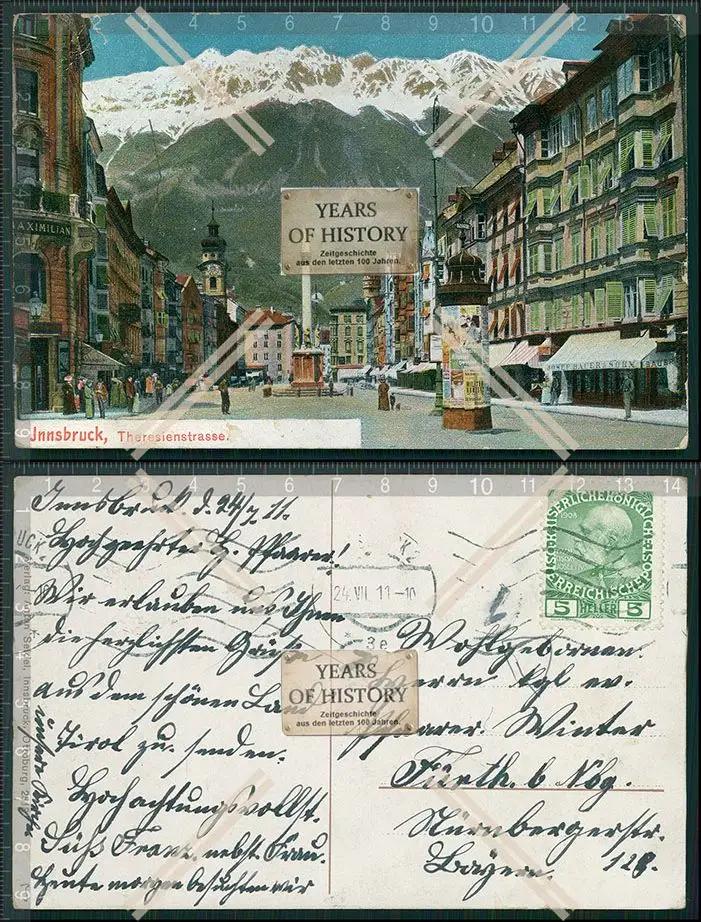 MAXIMILIAN
YEARS
OF HISTORY
Zeitgeschichte
aus den letzten 100 Jahren.
JOSEF BAUER & SOHN
Innsbruck, Theresienstrasse.
Innsbruck d. 24/7 11.
Hochgeehrter H. Pfarrer!
Wir erlauben uns Ihnen
die herzlichsten Grüße
aus dem schönen Land
Tirol zu senden.
Hochachtungsvollst.
Süß Franz nebst Frau.
Heute morgen besuchten wir
unsere
24.VII.11-10
3e
1908
KAISERLICHEKÖNIGLICHE
ÖSTERREICHISCHE POST
5 HELLER 5
Wohlgeboren
Herrn kgl ev.
Pfarrer Winter
Fürth. b Nbg.
Nürnbergerstr.
Bayern. 128.
YEARS
OF HISTORY
Zeitgeschichte
aus den letzten 100 Jahren.